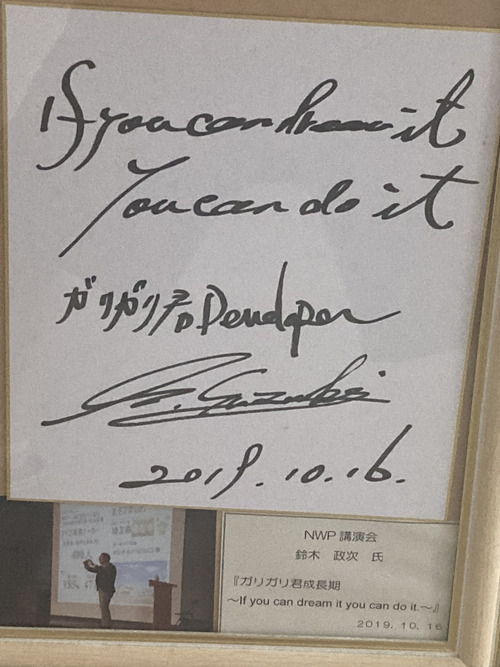 If you can dream it
You can do it
ガリガリ君 Developer
M. Suzuki
2019.10.16.
NWP 講演会
鈴木 政次 氏
『ガリガリ君成長期
～If you can dream it you can do it.～』
2019. 10. 16